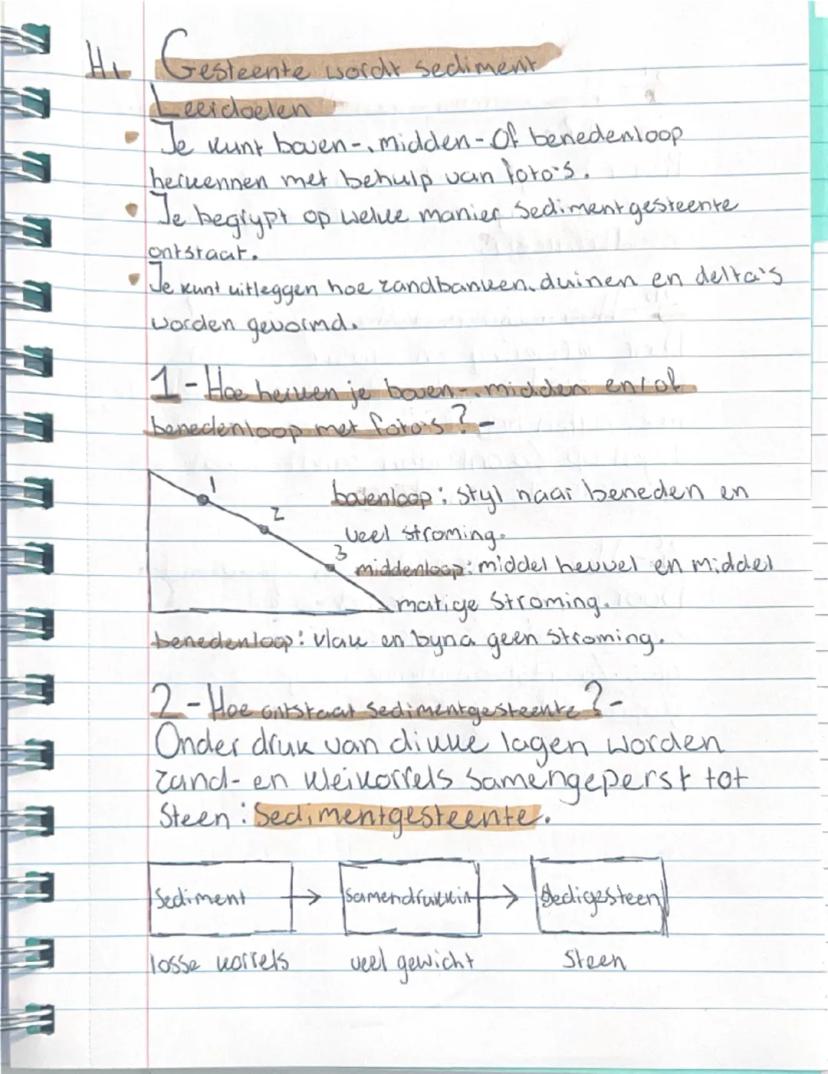 H1 Gesteente wordt sediment
Leerdoelen
• Je kunt boven-, midden- of benedenloop
herkennen met behulp van foto's.
• Je begrypt op welke manier sedimentgesteente
ontstaat.
• Je kunt uitleggen hoe zandbanken, duinen en delta's
worden gevormd.
1 - Hoe herken je boven-, midden en/of
benedenloop met foto's? -
1
bovenloop: styl naar beneden en
2
veel stroming.
3
middenloop: middel heuvel en middel
matige stroming.
benedenloop: vlak en byna geen stroming.
2 - Hoe ontstaat sedimentgesteente? -
Onder druk van dikke lagen worden
zand- en kleikorrels samengeperst tot
steen: Sedimentgesteente.
Sediment → samendrukkin → Sedigesteen
losse korrels veel gewicht steen